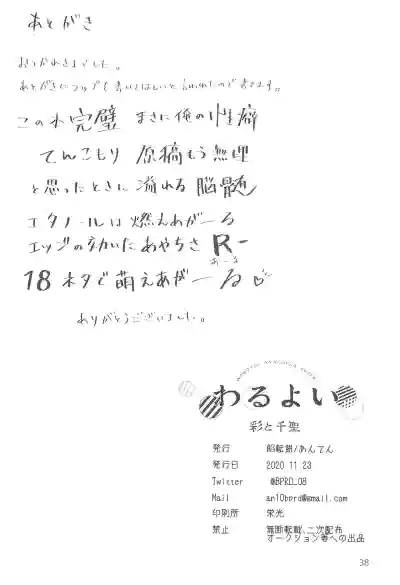 あとがき
おつかれさまでした。
あとがきにラップを書いてほしいと言われたので書きます。
この本完璧 まさに俺の性癖
てんこもり 原稿もう無理
と思ったときに溢れる脳髄
エタノールは燃えあがーる
エッジの効いたあやちさ R-
あーる
18ネタで萌えあがーる♡
ありがとうございました。
わるよい
彩と千聖
発行 餡転餅/あんてん
発行日 2020 11.23
Twitter @BPRD_08
Mail an10bprd@gmail.com
印刷所 栄光
禁止 無断転載、二次配布
オークション等への出品
38